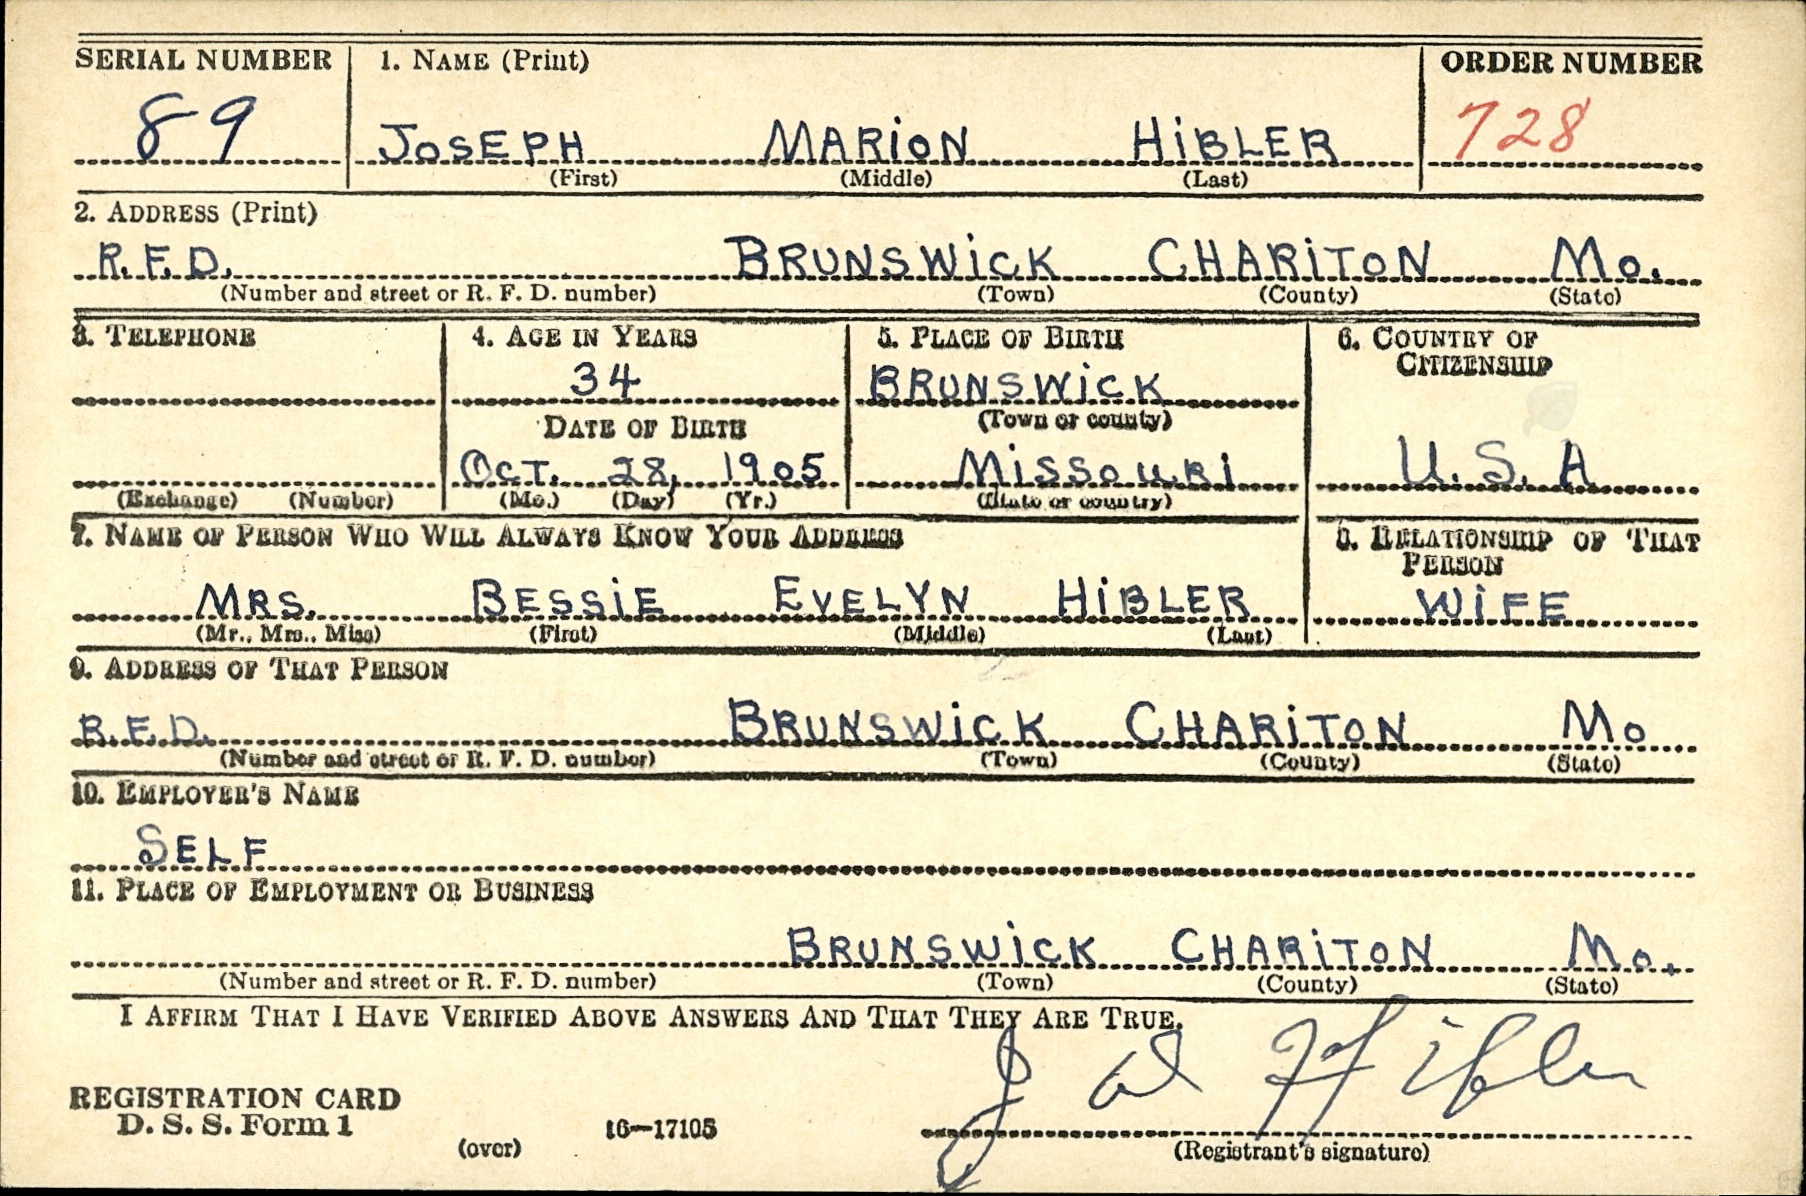 SERIAL NUMBER 1. NAME (Print) ORDER NUMBER
89 JOSEPH MARION HIBLER 728
(First) (Middle) (Last)
2. ADDRESS (Print)
R.F.D. BRUNSWICK CHARITON Mo.
(Number and street or R. F. D. number) (Town) (County) (State)
3. TELEPHONE 4. AGE IN YEARS 5. PLACE OF BIRTH 6. COUNTRY OF
CITIZENSHIP
34 BRUNSWICK
DATE OF BIRTH (Town or county)
OCT. 28, 1905 MISSOURI U.S.A
(Exchange) (Number) (Mo.) (Day) (Yr.) (State or country)
7. NAME OF PERSON WHO WILL ALWAYS KNOW YOUR ADDRESS 8. RELATIONSHIP OF THAT
PERSON
MRS. BESSIE EVELYN HIBLER WIFE
(Mr., Mrs., Miss) (First) (Middle) (Last)
9. ADDRESS OF THAT PERSON
R.F.D. BRUNSWICK CHARITON Mo
(Number and street or R. F. D. number) (Town) (County) (State)
10. EMPLOYER'S NAME
SELF
11. PLACE OF EMPLOYMENT OR BUSINESS
BRUNSWICK CHARITON Mo.
(Number and street or R. F. D. number) (Town) (County) (State)
I AFFIRM THAT I HAVE VERIFIED ABOVE ANSWERS AND THAT THEY ARE TRUE.
J Hibler
REGISTRATION CARD
D. S. S. Form 1 16—17105
(over) (Registrant's signature)